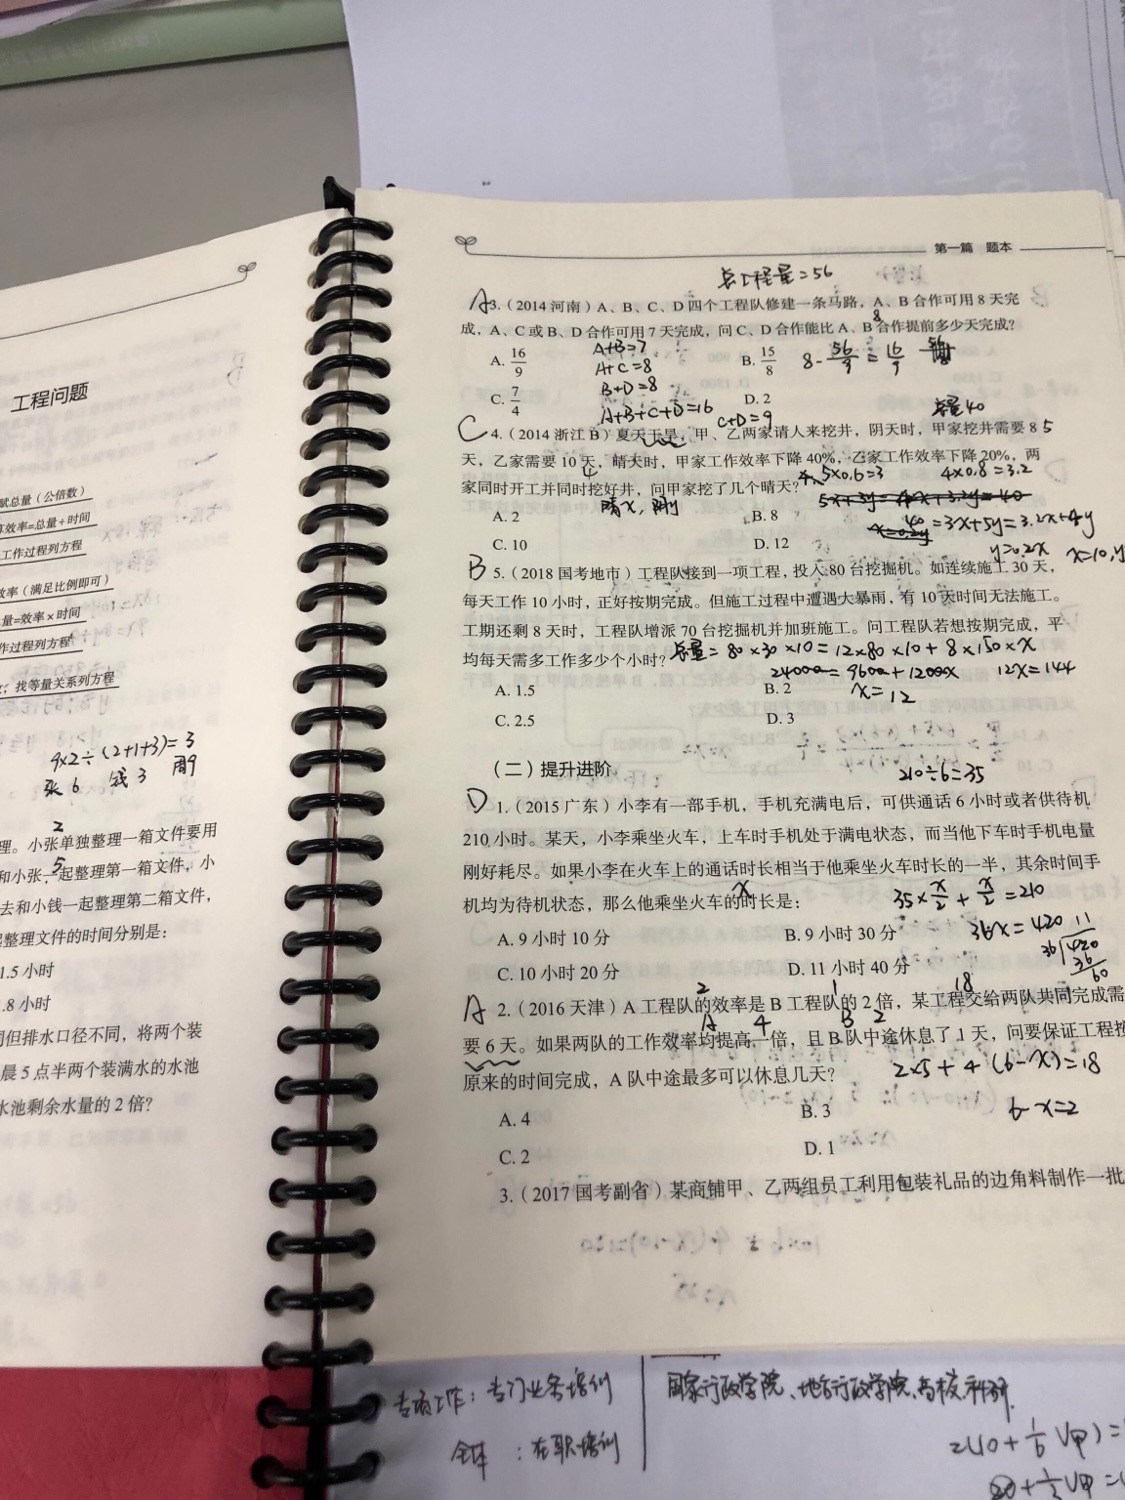 工程问题
赋总量（公倍数）
算效率=总量÷时间
工作过程列方程
效率（满足比例即可）
量=效率×时间
作过程列方程
；找等量关系列方程
9×2÷(2+1+3)=3
张6 钱3 用9
2
理。小张单独整理一箱文件要用
5
和小张一起整理第一箱文件，小
去和小钱一起整理第二箱文件，
整理文件的时间分别是：
1.5 小时
.8 小时
同但排水口径不同，将两个装
晨 5 点半两个装满水的水池
水池剩余水量的 2 倍？
第一篇 题本
总工程量=56
A 3.（2014 河南）A、B、C、D 四个工程队修建一条马路，A、B 合作可用 8 天完
成，A、C 或 B、D 合作可用 7 天完成，问 C、D 合作能比 A、B 合作提前多少天完成？
8
A. 16/9
B. 15/8
A+B=7
8-56/9=16/9
A+C=8
C. 7/4
D. 2
B+D=8
A+B+C+D=16
C+D=9
总量40
C 4.（2014 浙江 B）夏天干旱，甲、乙两家请人来挖井，阴天时，甲家挖井需要 8 5
天，乙家需要 10 天，晴天时，甲家工作效率下降 40%，乙家工作效率下降 20%，两
4 5×0.6=3 4×0.8=3.2
家同时开工并同时挖好井，问甲家挖了几个晴天？
晴x，阴y
A. 2
B. 8
40=3x+5y=3.2x+4y
C. 10
D. 12
y=0.2x x=10,y
B 5.（2018 国考地市）工程队接到一项工程，投入 80 台挖掘机。如连续施工 30 天，
每天工作 10 小时，正好按期完成。但施工过程中遭遇大暴雨，有 10 天时间无法施工。
工期还剩 8 天时，工程队增派 70 台挖掘机并加班施工。问工程队若想按期完成，平
均每天需多工作多少个小时？
总量=80×30×10=12×80×10+8×150×x
24000=9600+1200x 12x=144
A. 1.5
B. 2
x=12
C. 2.5
D. 3
（二）提升进阶
210÷6=35
D 1.（2015 广东）小李有一部手机，手机充满电后，可供通话 6 小时或者供待机
210 小时。某天，小李乘坐火车，上车时手机处于满电状态，而当他下车时手机电量
刚好耗尽。如果小李在火车上的通话时长相当于他乘坐火车时长的一半，其余时间手
机均为待机状态，那么他乘坐火车的时长是：
x
35×x/2+x/2=210
A. 9 小时 10 分
B. 9 小时 30 分
36x=420
11
36 420
36
60
C. 10 小时 20 分
D. 11 小时 40 分
2 1 18
A 2.（2016 天津）A 工程队的效率是 B 工程队的 2 倍，某工程交给两队共同完成需
A 4 B 2
要 6 天。如果两队的工作效率均提高一倍，且 B 队中途休息了 1 天，问要保证工程按
原来的时间完成，A 队中途最多可以休息几天？
2×5+4(6-x)=18
A. 4
B. 3
6-x=2
C. 2
D. 1
3.（2017 国考副省）某商铺甲、乙两组员工利用包装礼品的边角料制作一批
专项工作：专门业务培训
国家行政学院、地方行政学院、高校、科研
全体：在职培训